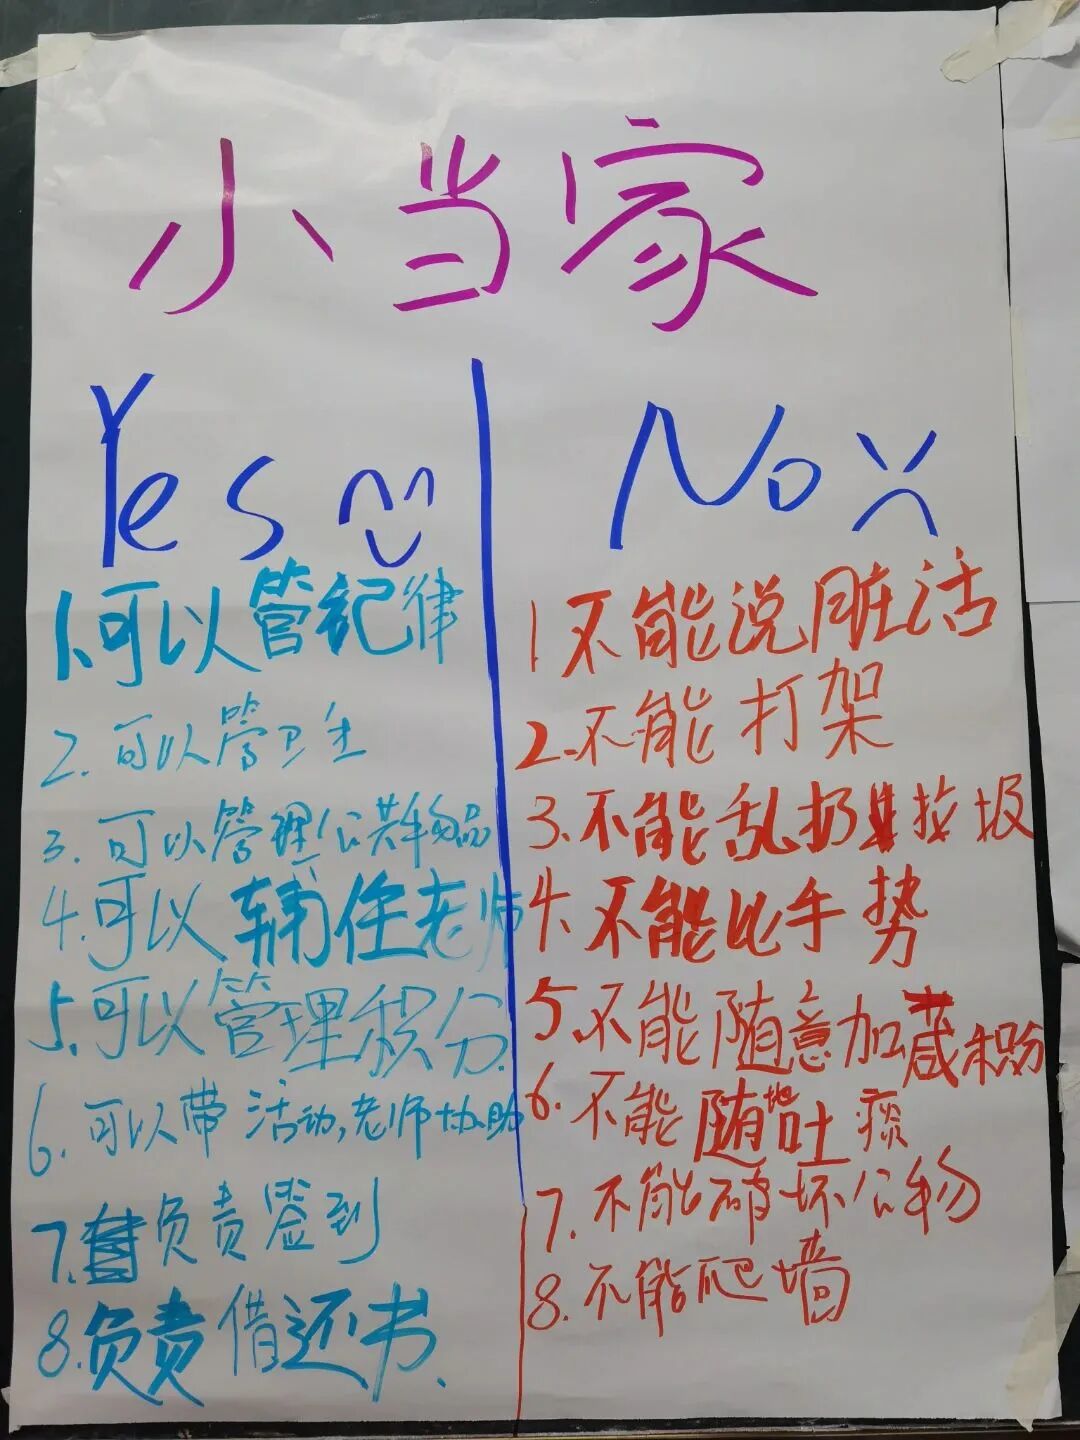 小当家
Yes
1.可以管纪律
2.可以管卫生
3.可以管理公共物品
4.可以辅住老师
5.可以管理积分.
6.可以带活动,老师协助
7.负责签到
8.负责借还书.
No
1不能说脏话
2.不能打架
3.不能乱扔垃圾
4.不能比手势
5.不能随意加减积分
6.不能随地吐痰
7.不能破坏公物
8.不能爬墙